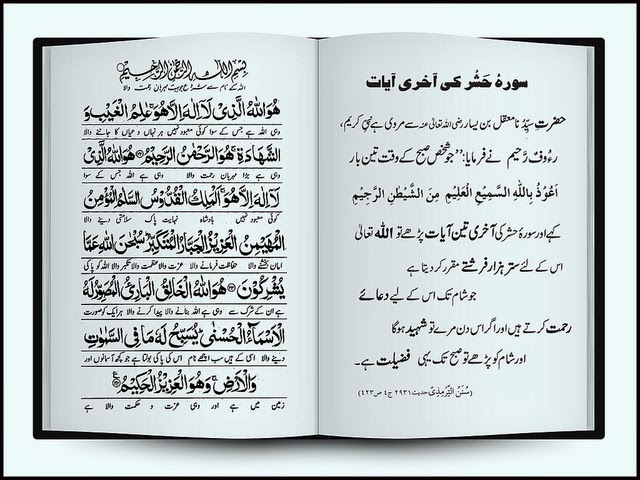 سورۂ حَشْر کی آخری آیات
حضرتِ سیِّدُنا معقل بن یسار رضی اللہ تعالیٰ عنہ سے مروی ہے نبیِّ کریم،
رءُوفٌ رَّحیم نے فرمایا: ”جو شخص صبح کے وقت تین بار
اَعُوْذُ بِاللّٰهِ السَّمِیْعِ الْعَلِیْمِ مِنَ الشَّیْطٰنِ الرَّجِیْمِ
کہے اور سورۂ حشر کی آخری تین آیات پڑھے تو اللہ تعالیٰ
اس کے لئے ستر ہزار فرشتے مقرر کر دیتا ہے
جو شام تک اس کے لیے دعائے
رحمت کرتے ہیں اور اگر اس دن مرے تو شہید ہوگا
اور شام کو پڑھے تو صبح تک یہی فضیلت ہے۔
(سُنَنُ التِّرمِذِیّ حدیث ۲۹۳۱ ج۴ ص ۴۲۳)
بِسْمِ اللّٰهِ الرَّحْمٰنِ الرَّحِیْمِ
اللہ کے نام سے شروع جو بہت مہربان رحمت والا
هُوَ اللّٰهُ الَّذِیْ لَاۤ اِلٰهَ اِلَّا هُوَ ۚ عٰلِمُ الْغَیْبِ وَ
وہی اللہ ہے جس کے سوا کوئی معبود نہیں ہر نہاں و عیاں کا جاننے والا
الشَّهَادَةِ ۚ هُوَ الرَّحْمٰنُ الرَّحِیْمُ هُوَ اللّٰهُ الَّذِیْ
وہی ہے بڑا مہربان رحمت والا وہی ہے اللہ جس کے سوا
لَاۤ اِلٰهَ اِلَّا هُوَ ۚ اَلْمَلِكُ الْقُدُّوْسُ السَّلٰمُ الْمُؤْمِنُ
کوئی معبود نہیں بادشاہ نہایت پاک سلامتی دینے والا
الْمُهَیْمِنُ الْعَزِیْزُ الْجَبَّارُ الْمُتَكَبِّرُ ؕ سُبْحٰنَ اللّٰهِ عَمَّا
امان بخشنے والا حفاظت فرمانے والا عزت والا عظمت والا تکبر والا اللہ کو پاکی
یُشْرِكُوْنَ هُوَ اللّٰهُ الْخَالِقُ الْبَارِئُ الْمُصَوِّرُ لَهُ
ہے ان کے شرک سے وہی ہے اللہ بنانے والا پیدا کرنے والا ہر ایک کو صورت
الْاَسْمَآءُ الْحُسْنٰى ؕ یُسَبِّحُ لَهٗ مَا فِی السَّمٰوٰتِ
دینے والا اسی کے ہیں سب اچھے نام اس کی پاکی بولتا ہے جو کچھ آسمانوں اور
وَالْاَرْضِ ۚ وَهُوَ الْعَزِیْزُ الْحَكِیْمُ
زمین میں ہے اور وہی عزت و حکمت والا ہے